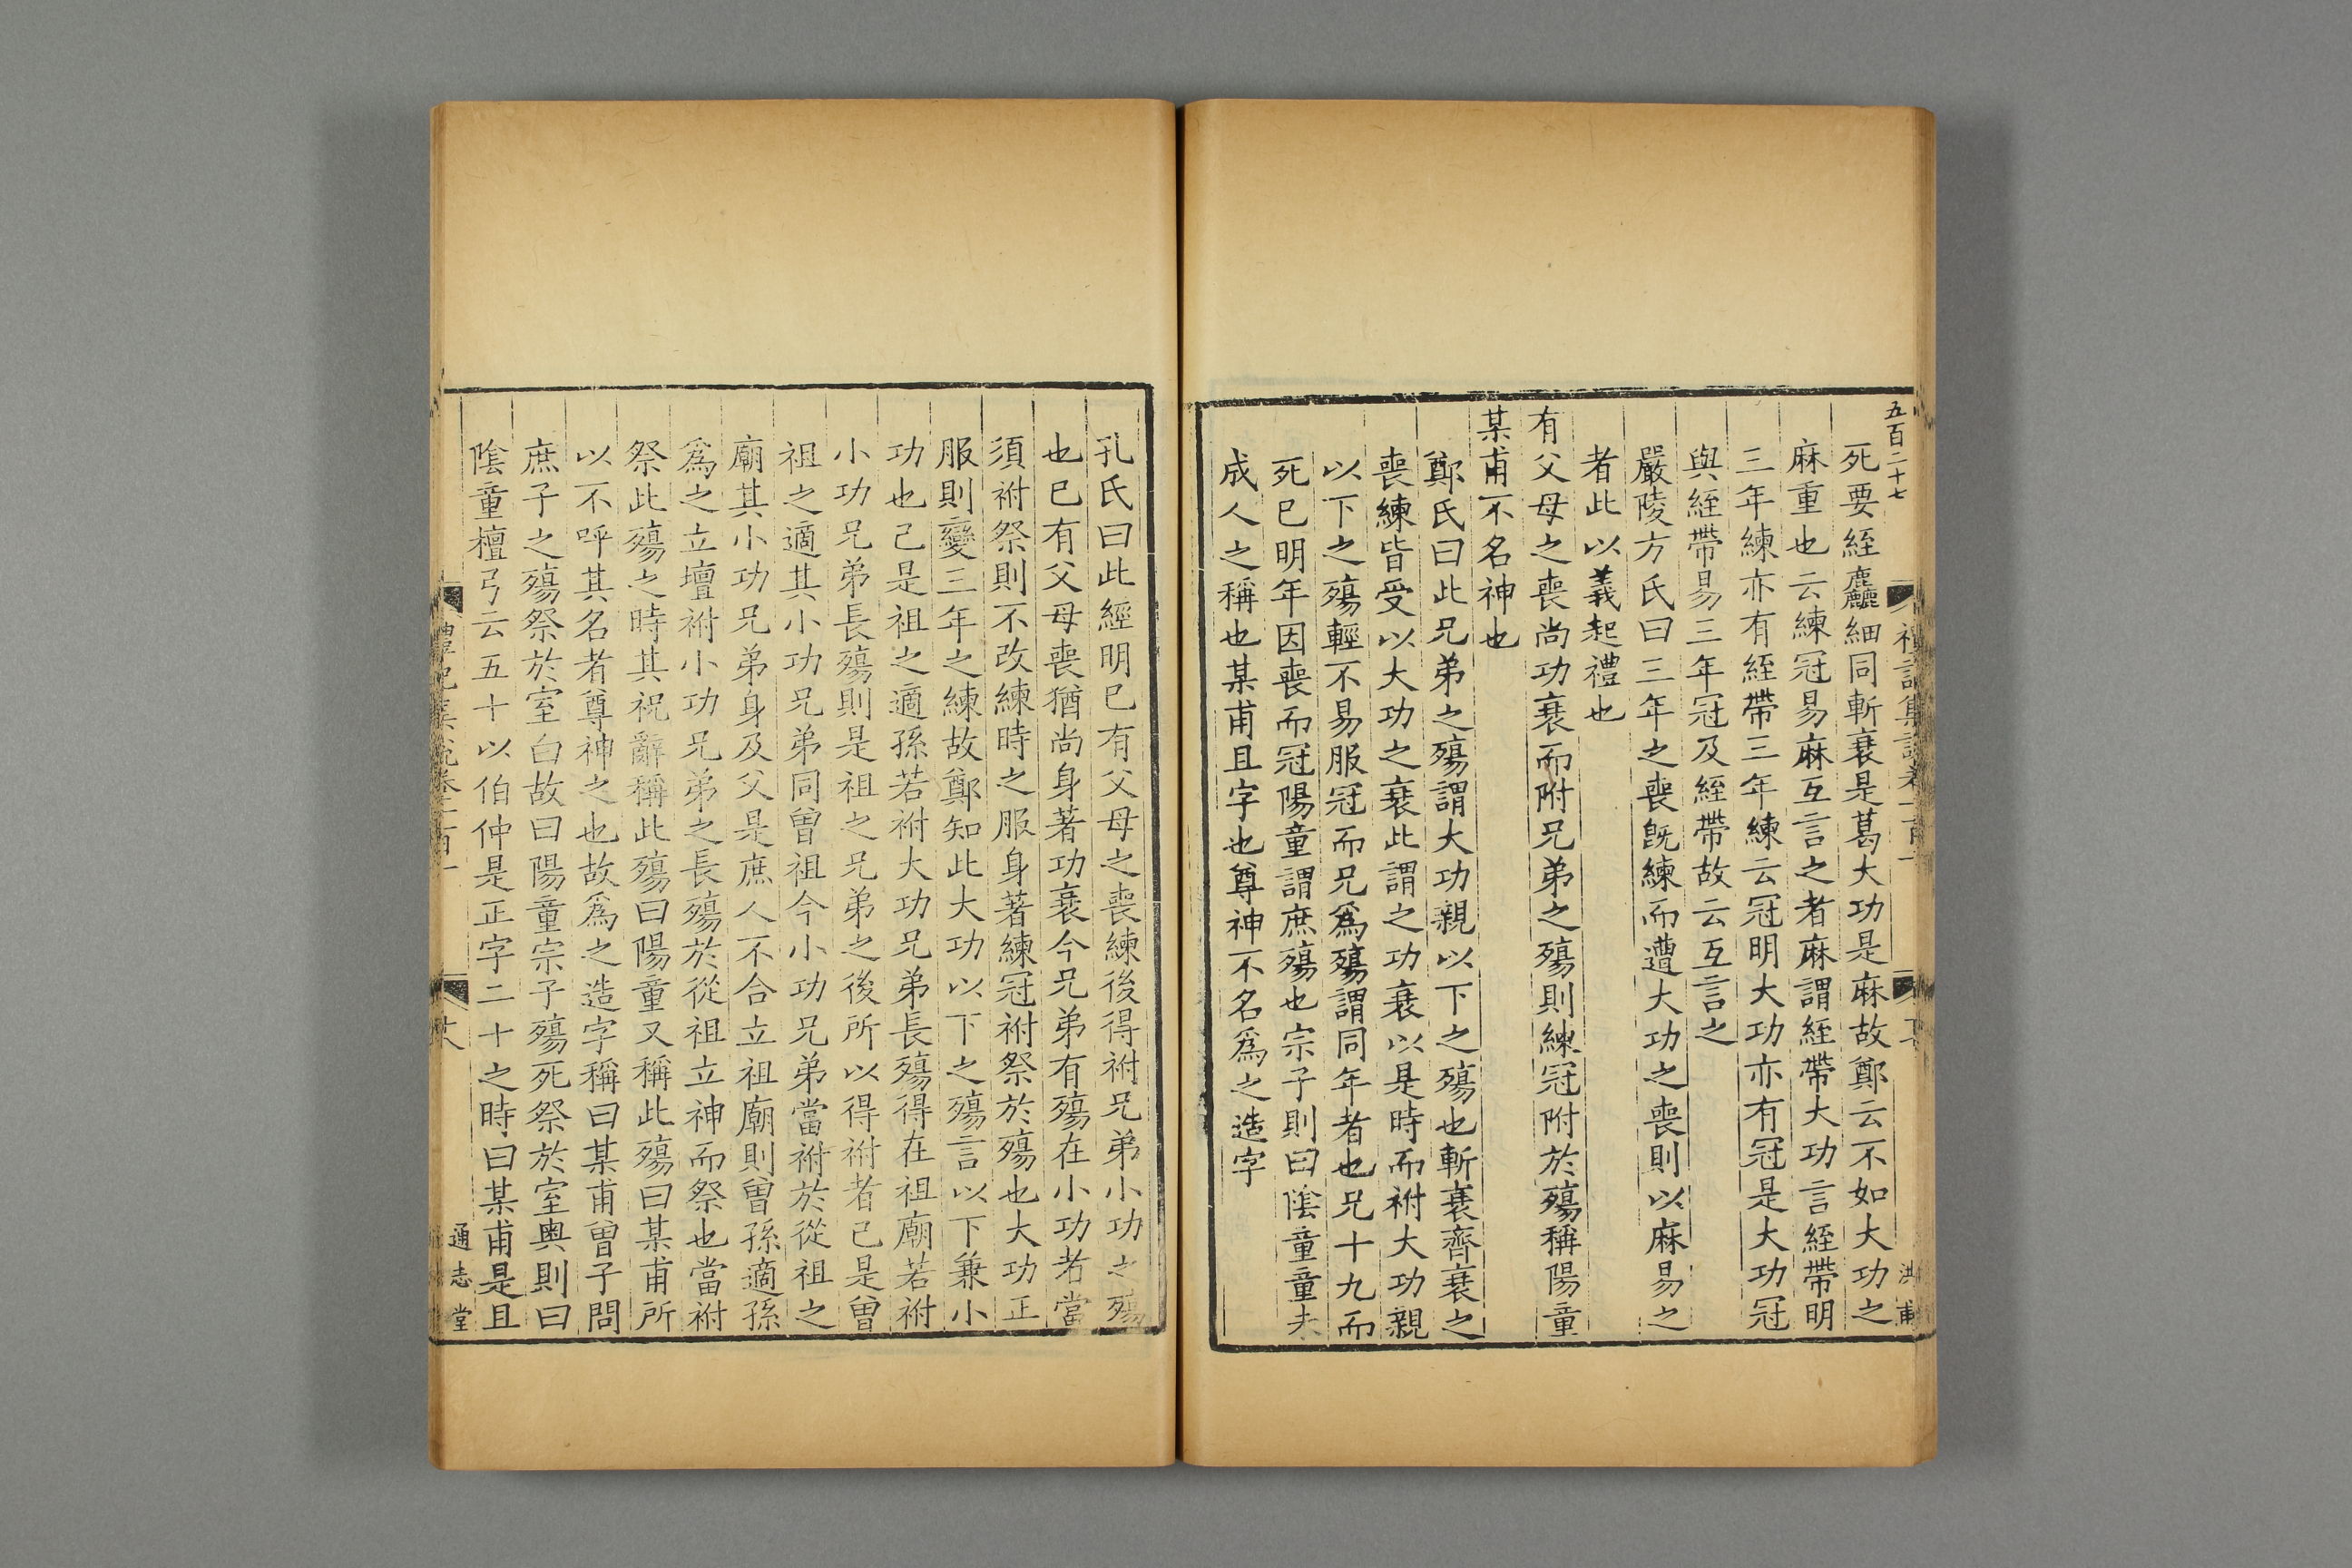 五百二十七
死要絰麤細同斬衰是葛大功是麻故鄭云不如大功之
麻重也云練冠易麻互言之者麻謂絰帶大功言絰帶明
三年練亦有絰帶三年練云冠明大功亦有冠是大功冠
與絰帶易三年冠及絰帶故云互言之
嚴陵方氏曰三年之喪旣練而遭大功之喪則以麻易之
者此以義起禮也
有父母之喪尚功衰而附兄弟之殤則練冠附於殤稱陽童
某甫不名神也
鄭氏曰此兄弟之殤謂大功親以下之殤也斬衰齊衰之
喪練皆受以大功之衰此謂之功衰以是時而祔大功親
以下之殤輕不易服冠而兄爲殤謂同年者也兄十九而
死巳明年因喪而冠陽童謂庶殤也宗子則曰陰童童未
成人之稱也某甫且字也尊神不名爲之造字
孔氏曰此經明巳有父母之喪練後得祔兄弟小功之殤
也巳有父母喪猶尚身著功衰今兄弟有殤在小功者當
須祔祭則不改練時之服身著練冠祔祭於殤也大功正
服則變三年之練故鄭知此大功以下之殤言以下兼小
功也己是祖之適孫若祔大功兄弟長殤得在祖廟若祔
小功兄弟長殤則是祖之兄弟之後所以得祔者己是曾
祖之適其小功兄弟同曾祖今小功兄弟當祔於從祖之
廟其小功兄弟身及父是庶人不合立祖廟則曾孫適孫
爲之立壇祔小功兄弟之長殤於從祖立神而祭也當祔
祭此殤之時其祝辭稱此殤曰陽童又稱此殤曰某甫所
以不呼其名者尊神之也故爲之造字稱曰某甫曾子問
庶子之殤祭於室白故曰陽童宗子殤死祭於室奧則曰
陰童檀弓云五十以伯仲是正字二十之時曰某甫是且
通志堂